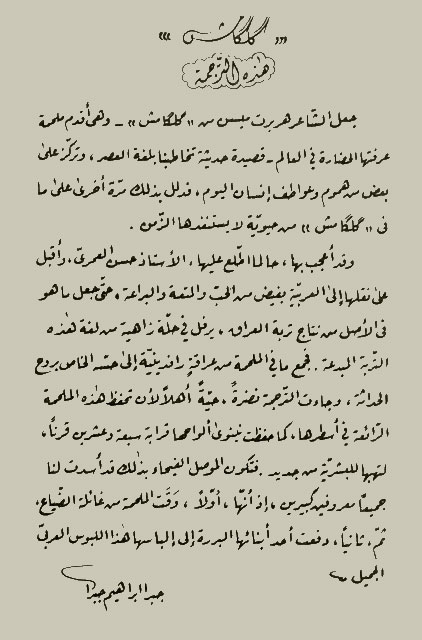 « گلگامش »
هذه الترجمة
جعل الشاعر هربرت ميسن من «گلگامش» – وهي أقدم ملحمة
عرفتها الحضارة في العالم – قصيدة حديثة تخاطبنا بلغة العصر ، وتركّز على
بعض من هموم وعواطف إنسان اليوم ، فدلل بذلك مرّة أخرى على ما
في «گلگامش» من حيويّة لا يستنفدها الزّمن .
وقد أُعجب بها ، حالما اطّلع عليها ، الأستاذ حسن العمريّ ، وأقبل
على نقلها إلى العربيّة بفيض من الحبّ والمتعة والبراعة ، حتّى جعل ما هو
في الأصل من نتاج تربة العراق ، يرفل في حلّة زاهية من لغة هذه
التّربة المبدعة . فجمع ما في الملحمة من عراقةٍ رافدينيّة إلى حسّه الخاص بروح
الحداثة ، وجاءت التّرجمة نضرةً ، حيّةً أهلاً لأن تحفظ هذه الملحمة
الرّائعة في أسطرها ، كما حفظت نينوى ألواحها قرابة سبعة وعشرين قرناً ،
لتهبها للبشريّة من جديد . فتكون الموصل الفيحاء بذلك قد أسدت لنا
جميعاً معروفين كبيرين ، إذ أنّها ، أوّلاً ، وَقَت الملحمة من غائلة الضّياع ،
ثمّ ، ثانياً ، دفعت أحد أبنائها البررة إلى إلباسها هذا اللبوس العربيّ
الجميل
جبرا ابراهيم جبرا